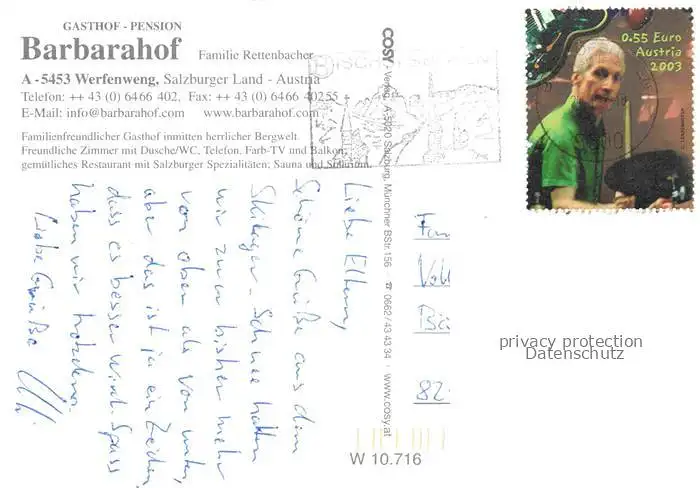 GASTHOF - PENSION
Barbarahof Familie Rettenbacher
A - 5453 Werfenweng, Salzburger Land - Austria
Telefon: ++ 43 (0) 6466 402, Fax: ++43 (0) 6466 40255
E-Mail: info@barbarahof.com www.barbarahof.com
Familienfreundlicher Gasthof inmitten herrlicher Bergwelt.
Freundliche Zimmer mit Dusche/WC, Telefon, Farb-TV und Balkon,
gemütliches Restaurant mit Salzburger Spezialitäten; Sauna und Solarium.
Liebe Eltern,
Schöne Grüße aus dem
Skilager - Schnee hatten
wir zwar bisher mehr
von oben als von unten,
aber das ist ja ein Zeichen,
dass es besser wird. Spass
haben wir trotzdem.
Liebe Grüße
COSY Verlag, A-5020 Salzburg, Münchner BStr. 156 ☎ 0662/43 43 34 • www.cosy.at
W 10.716
0.55 Euro
Austria
2003
BISCHOFSHOFEN
Fam
82
privacy protection
Datenschutz